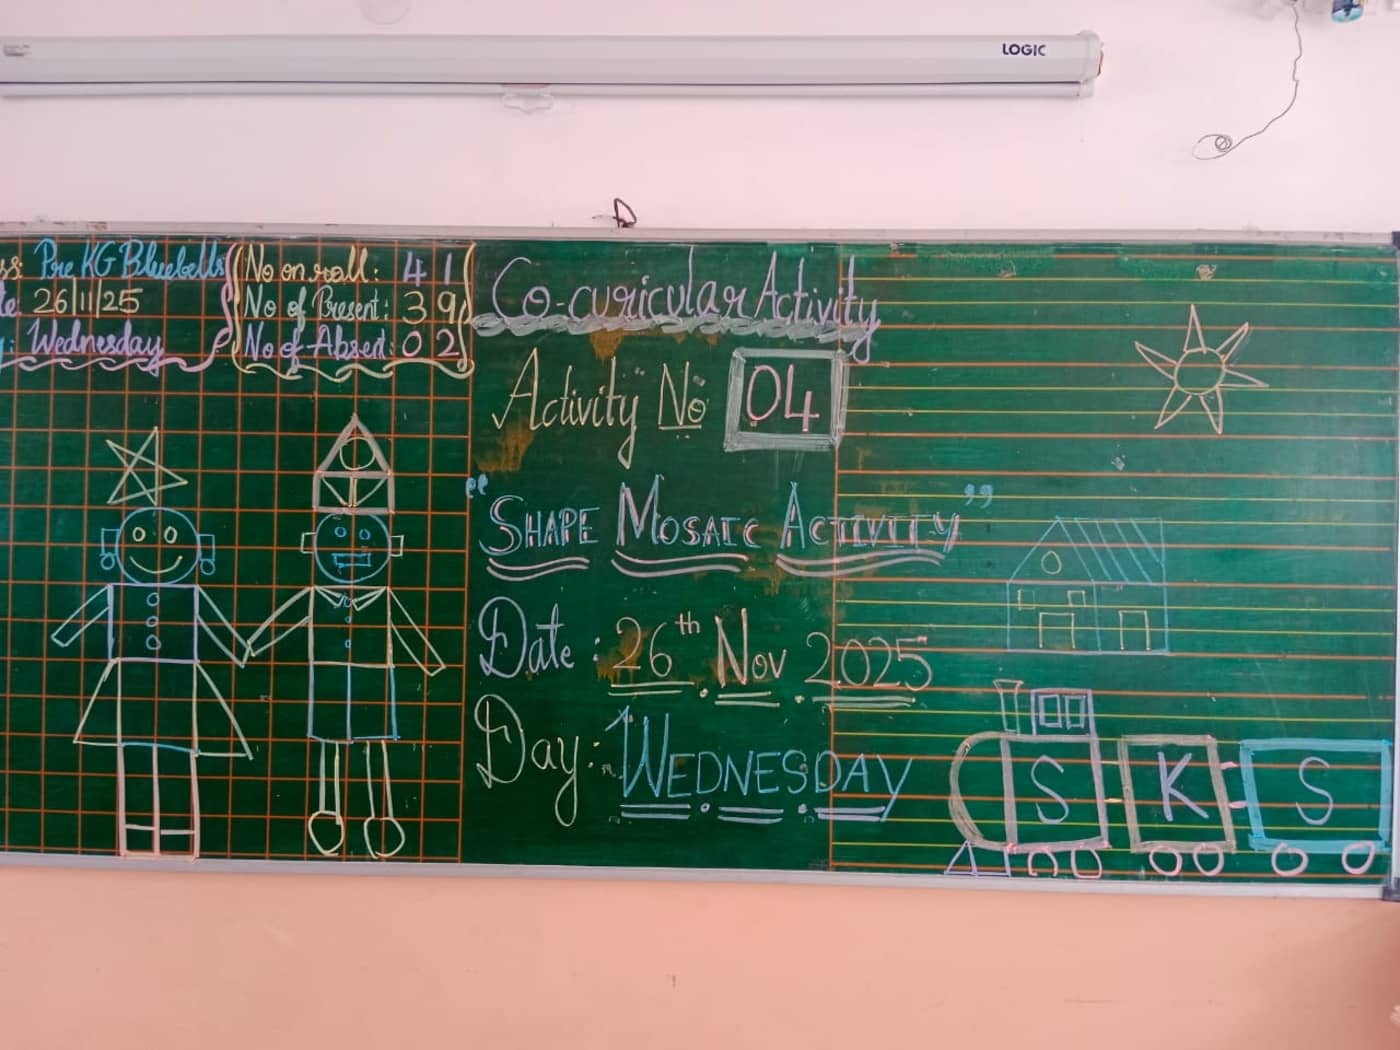 LOGIC
ss: Pre KG Bluebells
te: 26/11/25
y: Wednesday
No on roll: 41
No of Present: 39
No of Absent: 02
Co-curicular Activity
Activity No 04
"SHAPE MOSAIC ACTIVITY"
Date: 26th Nov 2025
Day: WEDNESDAY
S K S